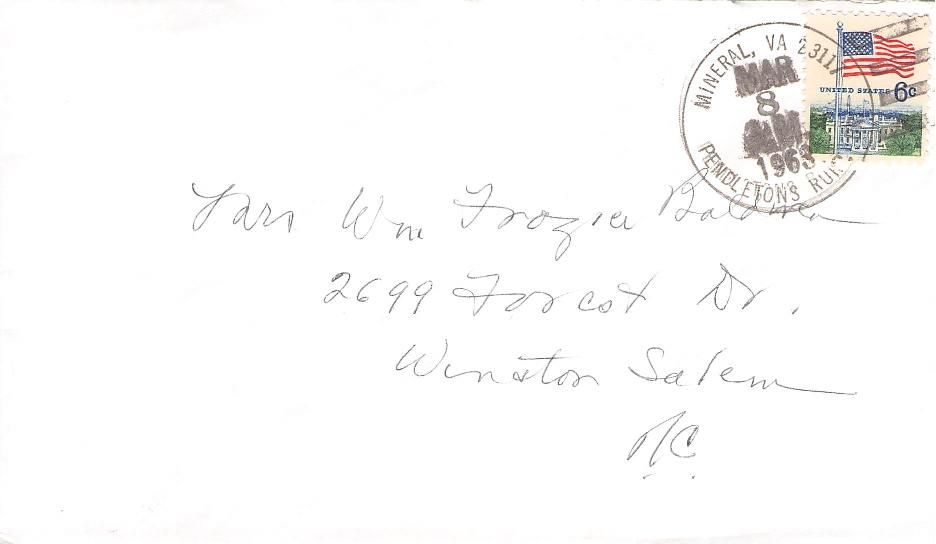 MINERAL, VA 23117
MAR
8
AM
1963
PENDLETONS RUR.
UNITED STATES 6c
Mrs Wm Frazier Baldwin
2699 Forest Dr.
Winston Salem
N.C.